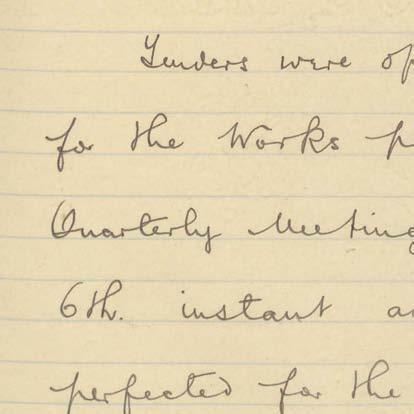 Tenders were op
for the Works p
Quarterly Meeting
6th. instant a
perfected for the